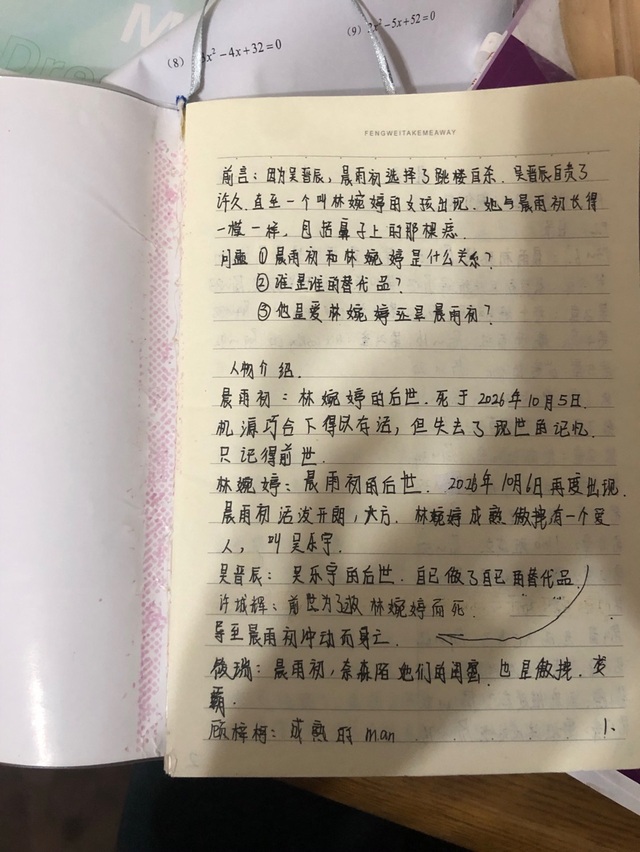 M
Dre
(8) 3x²-4x+32=0
(9) 2x²-5x+52=0
FENGWEITAKEMEAWAY
前言：因为吴晋辰，晨雨初选择了跳楼自杀，吴晋辰自责了
许久，直至一个叫林婉婷的女孩出现，她与晨雨初长得
一模一样，包括鼻子上的那棵痣.
问题 ①晨雨初和林婉婷是什么关系？
②谁是谁的替代品？
③他是爱林婉婷还是晨雨初？
人物介绍.
晨雨初：林婉婷的后世.死于2026年10月5日.
机源巧合下得以存活，但失去了现世的记忆.
只记得前世.
林婉婷：晨雨初的后世. 2026年10月6日再度出现.
晨雨初活泼开朗，大方. 林婉婷成熟傲挽有一个爱
人，叫吴乐宇.
吴晋辰：吴乐宇的后世.自己做了自己的替代品
许城辉：前世为了救林婉婷而死.
导至晨雨初冲动而身亡.
瑞：晨雨初，奈森陌她们的闺蜜.也是傲挽.
霸.
顾梓柯：成熟的man
1.